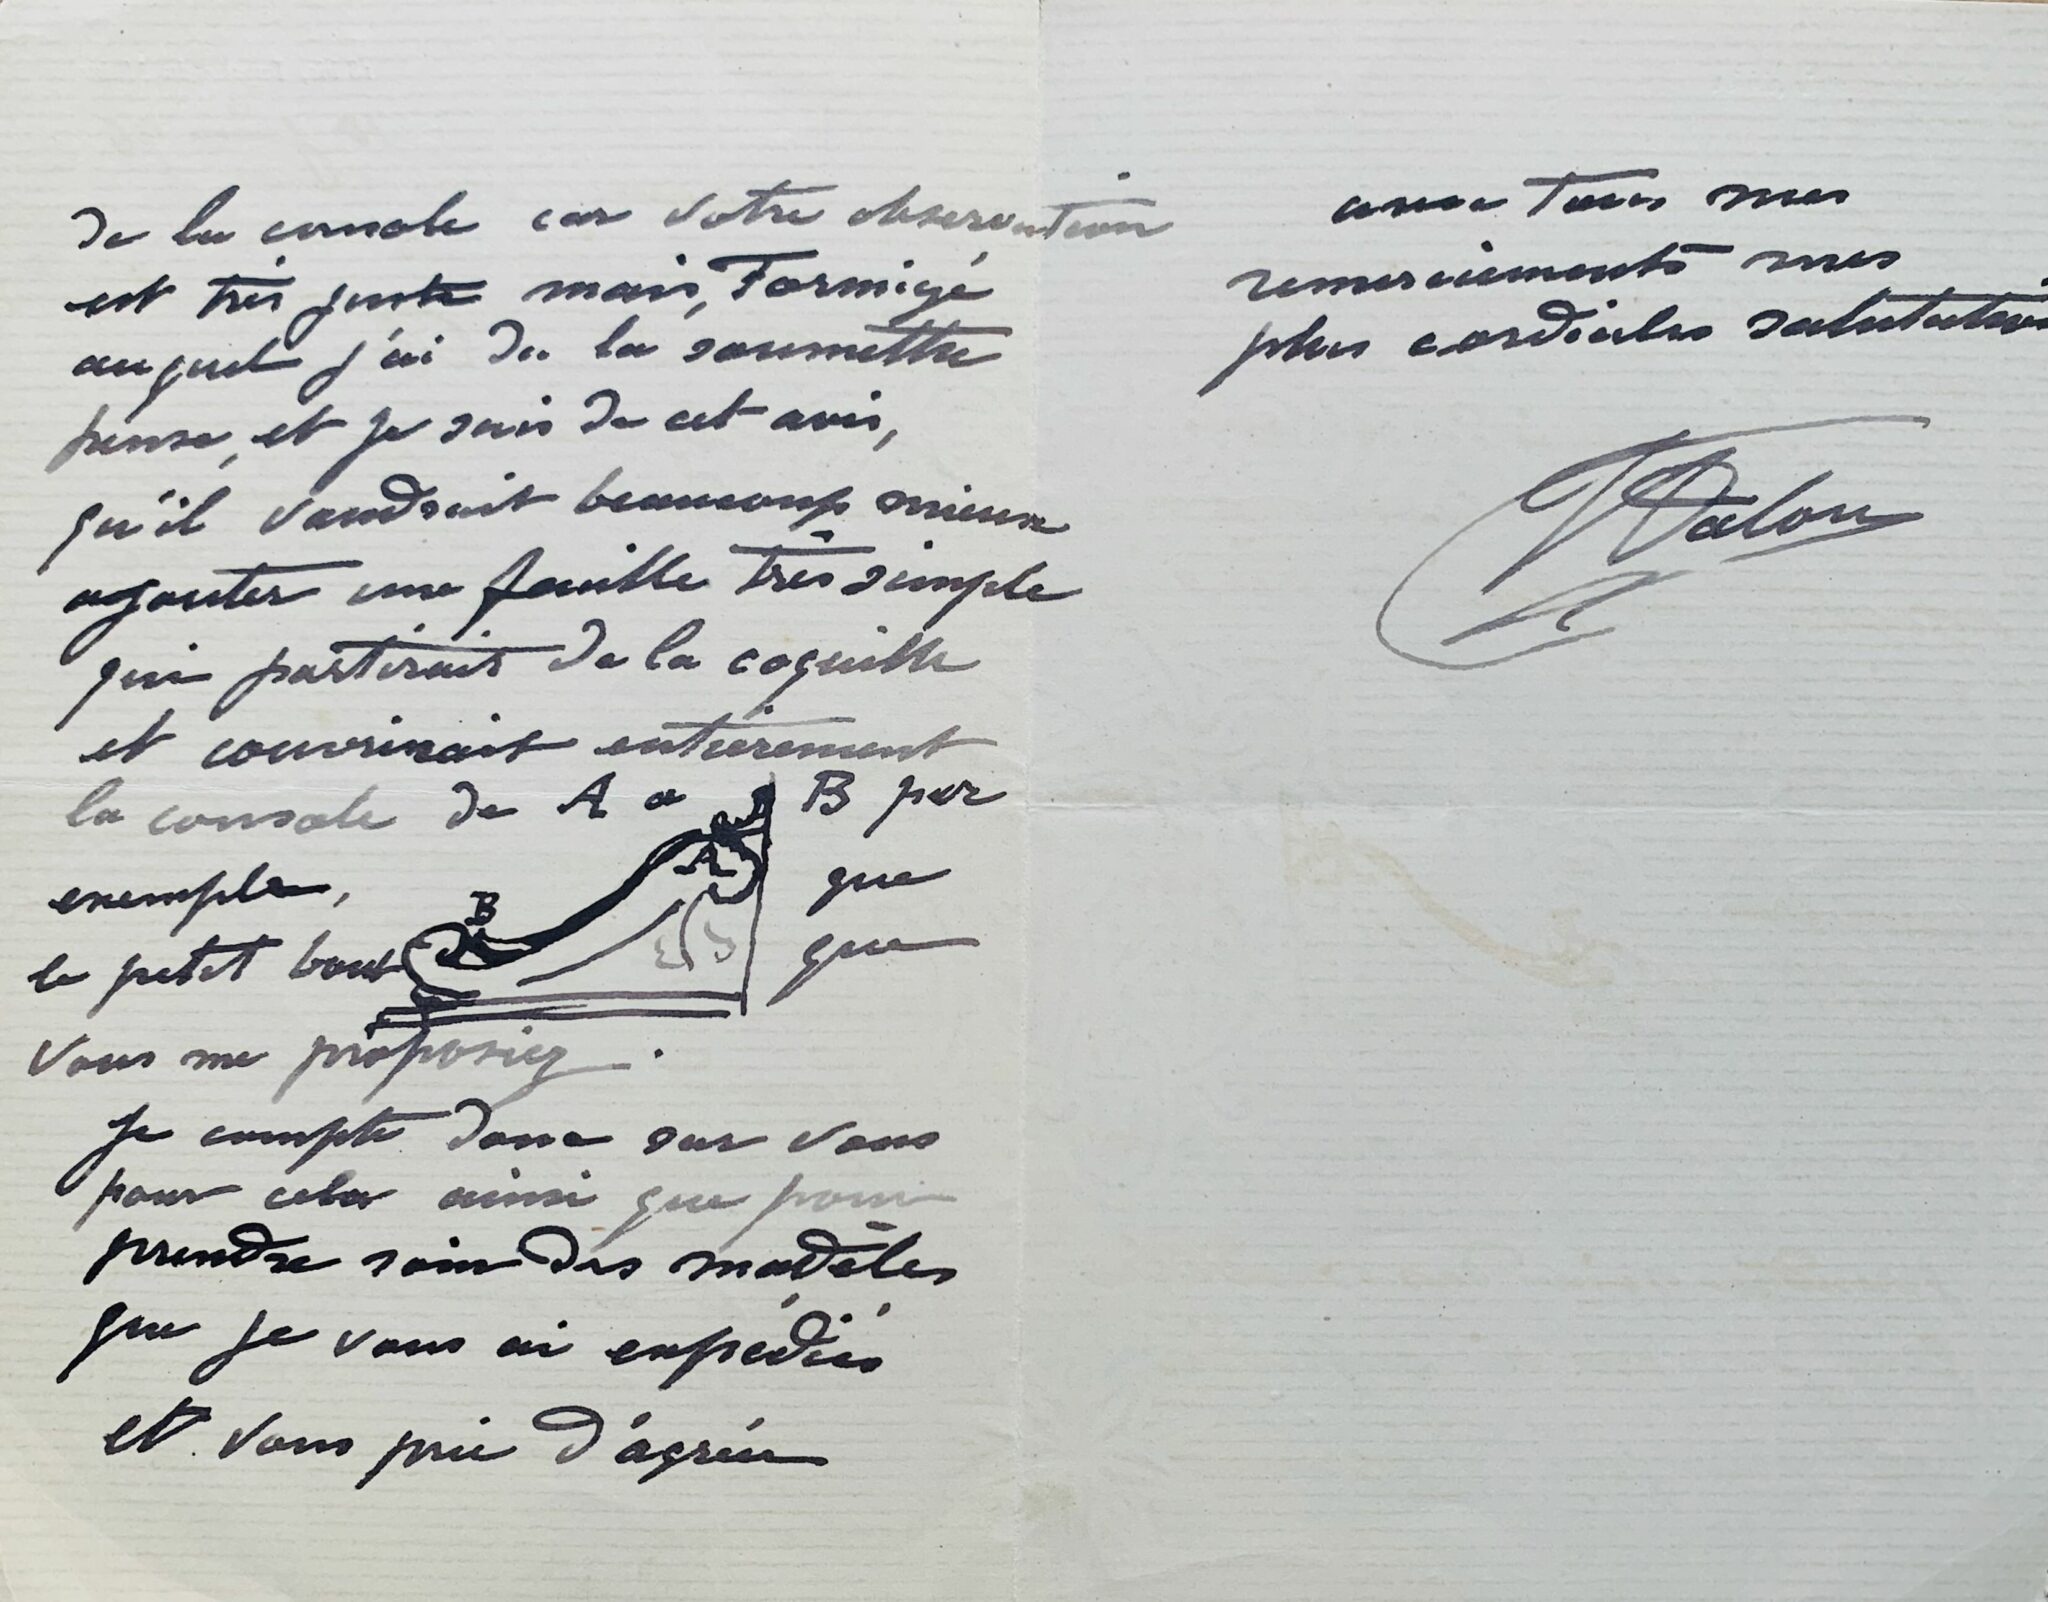 de la console car votre observation
est très juste mais, Formigé
auquel j'ai du la soumettre
pense, et je suis de cet avis,
qu'il vaudrait beaucoup mieux
ajouter une feuille très simple
qui partirait de la coquille
et couvrirait entièrement
la console de A a B par
exemple, que
le petit bout que
B
A
vous me proposiez.
Je compte donc sur vous
pour cela ainsi que pour
prendre soin des modèles
que je vous ai expédiés
et vous prie d'agréer
avec tous mes
remerciements mes
plus cordiales salutations
Dalou